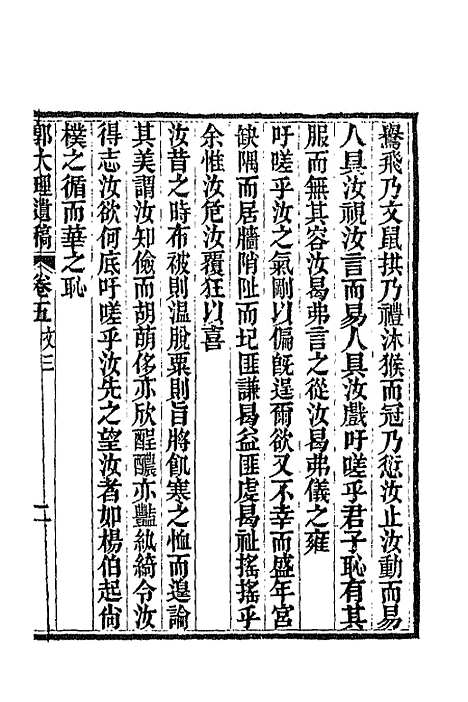 鷽飛乃文鼠拱乃禮沐猴而冠乃愆汝止汝動而易
人具汝視汝言而易人具汝戲吁嗟乎君子恥有其
服而無其容汝曷弗言之從汝曷弗儀之雍
吁嗟乎汝之氣剛以偏旣逞爾欲又不幸而盛年宮
缺隅而居牆陗阯而圮匪謙曷益匪虔曷祉搖搖乎
余惟汝危汝覆狂以喜
汝昔之時布被則溫脫粟則旨將飢寒之恤而遑論
其美謂汝知儉而胡萌侈亦欣醒醲亦豔紈綺令汝
得志汝欲何底吁嗟乎汝先之望汝者如楊伯起尙
樸之循而華之恥
郭大理遺稿 卷五 文三 二